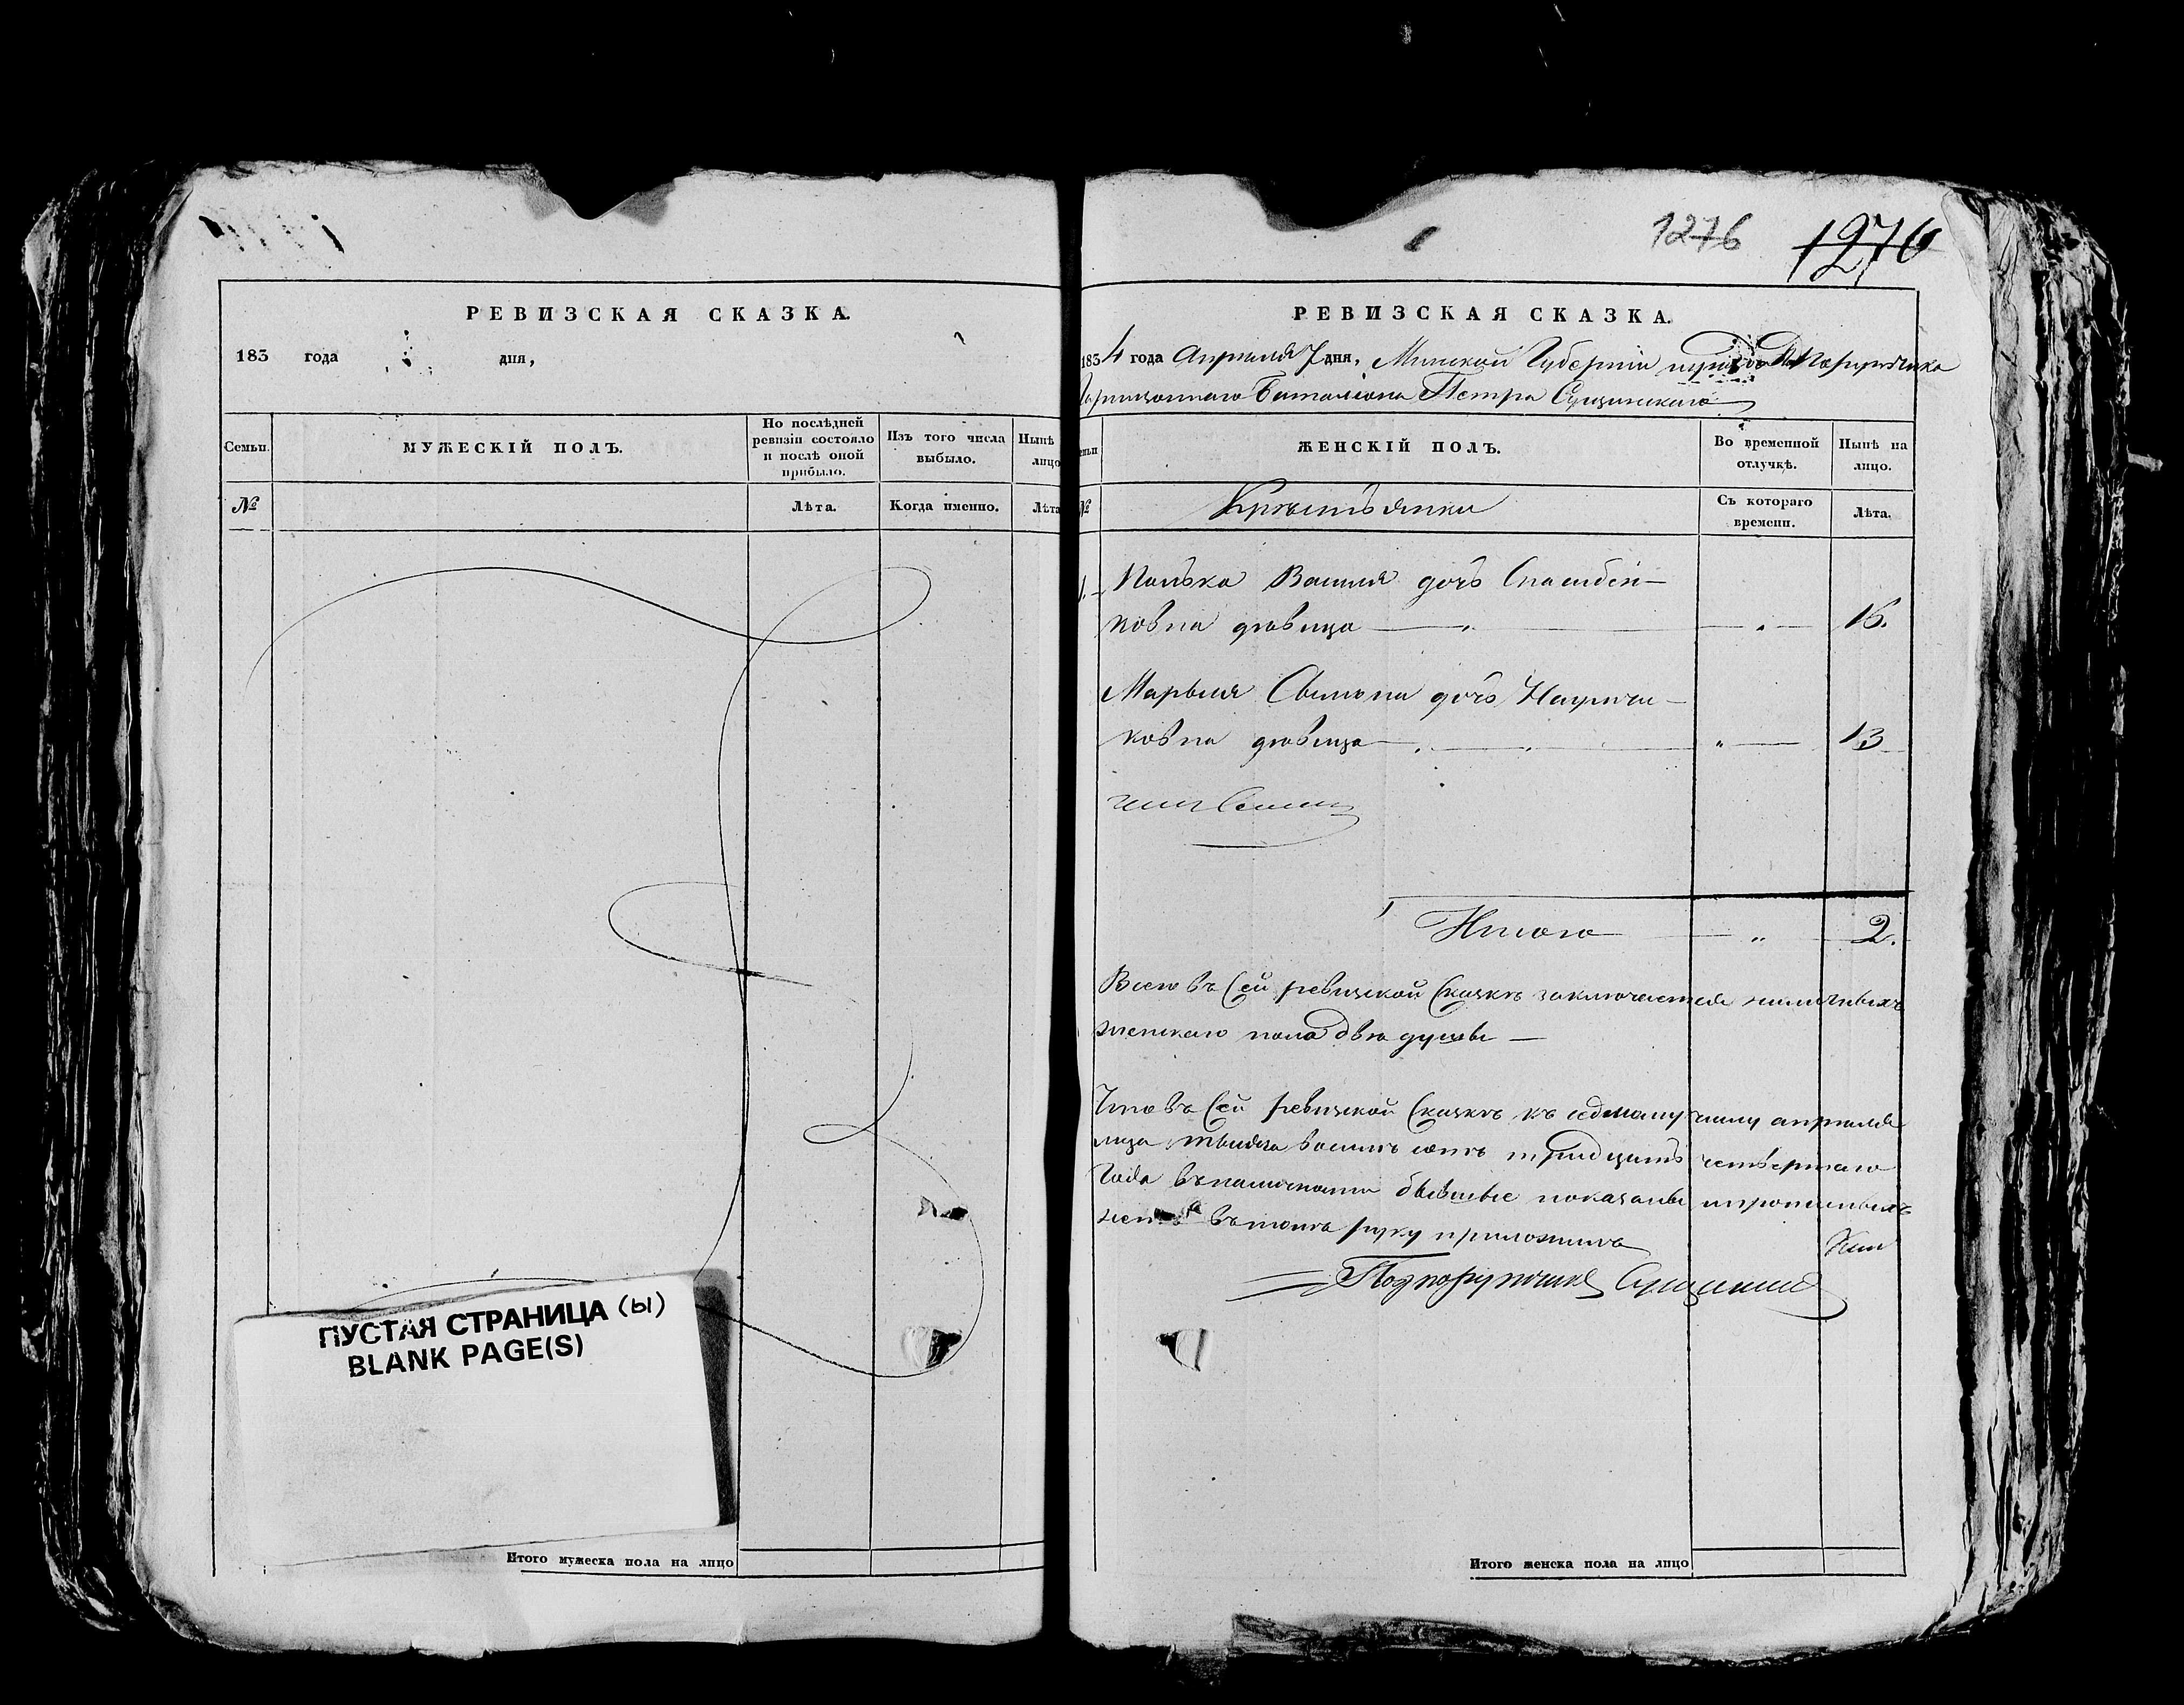 РЕВИЗСКАЯ СКАЗКА.
183 года дня,
Семьи.
МУЖЕСКІЙ ПОЛЪ.
По послѣдней
ревизіи состояло
и послѣ оной
прибыло.
Изъ того числа
выбыло.
Нынѣ
лицо
№
Лѣта.
Когда именно.
Лѣта
ПУСТАЯ СТРАНИЦА (Ы)
BLANK PAGE(S)
Итого мужеска пола на лицо
1276 1276
РЕВИЗСКАЯ СКАЗКА.
1834 года Апреля 7 дня, Минской Губерніи Подпоручика
Гарнизоннаго Баталіона Петра Сущинскаго
ЖЕНСКІЙ ПОЛЪ.
Во временной
отлучкѣ.
Нынѣ на
лицо.
№
Крестьянки
Съ котораго
времени.
Лѣта.
1. Василя дочь
ковна девица 16.
Марьяна дочь
ковна девица 13
Итого 2.
Всего въ Сей ревизкой Сказкѣ заключается наличныхъ
женскаго пола двѣ души
Что въ Сей ревизкой Сказкѣ къ седмому числу апреля
тысяча восемь сотъ тридцать четвертаго
Года въ бывшые показаны
въ томъ руку приложилъ
Подпоручикъ Сущинскій
Итого женска пола на лицо